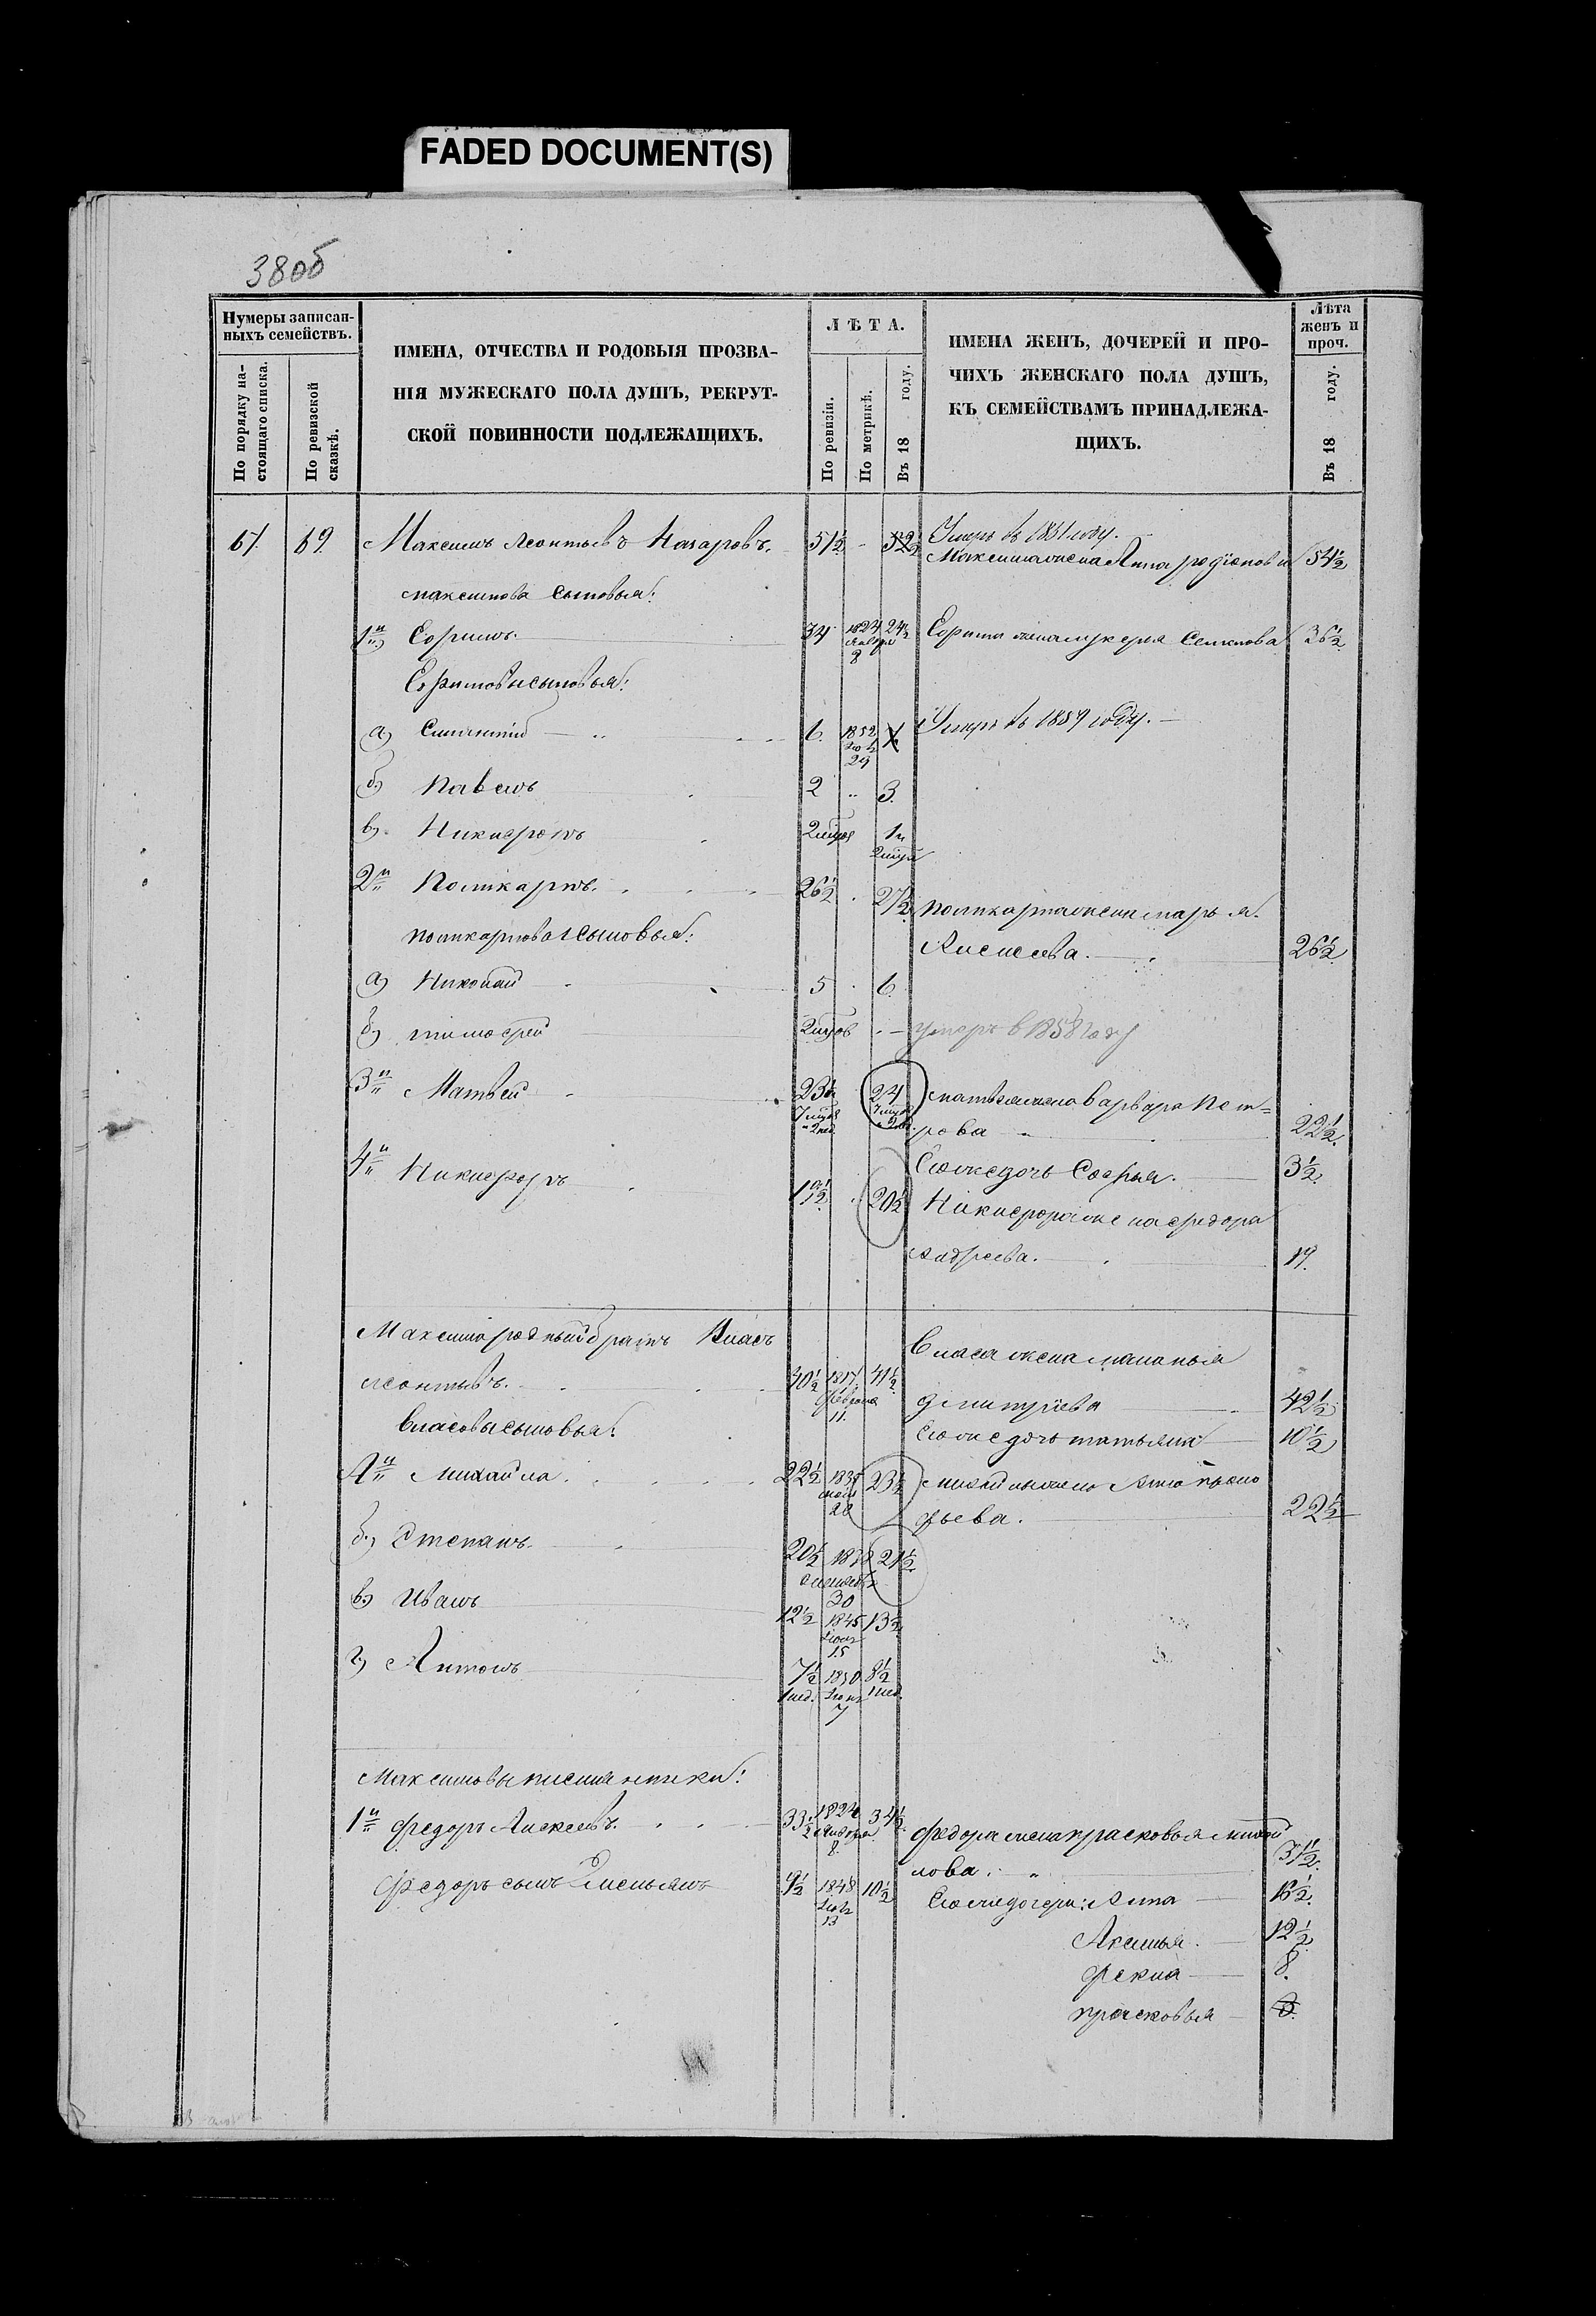 FADED DOCUMENT(S)
38об
Нумеры записан-
ныхъ семействъ.
По порядку на-
стоящаго списка.
По ревизской
сказкѣ.
ИМЕНА, ОТЧЕСТВА И РОДОВЫЯ ПРОЗВА-
НІЯ МУЖЕСКАГО ПОЛА ДУШЪ, РЕКРУТ-
СКОЙ ПОВИННОСТИ ПОДЛЕЖАЩИХЪ.
ЛѢТА.
По ревизіи.
По метрикѣ.
Въ 18 году.
ИМЕНА ЖЕНЪ, ДОЧЕРЕЙ И ПРО-
ЧИХЪ ЖЕНСКАГО ПОЛА ДУШЪ,
КЪ СЕМЕЙСТВАМЪ ПРИНАДЛЕЖА-
ЩИХЪ.
Лѣта
женъ и
проч.
Въ 18 году.
67. 69. Максимъ Леонтьевъ 51½ 52½ Умеръ въ 1861 году.
Максима жена Анна Родіонова 54½
Максимовы сыновья:
1й Ефимъ. 34 1824 Января 8 Ефима жена Лукерья Семенова 36½
Ефимовы сыновья:
а) 6. 1852 29 Умеръ въ 1859 году.
б) Павелъ 2 3.
в) Никифоръ 2 мцов 1 и 2 мца
2й Поликарпъ. 26½ 27½ Поликарпа жена Марья
Алексеева. 26½
Поликарповы сыновья:
а) Николай 5 6.
б) Тимофей 2 мцов умеръ в 1858 году
3й Матвей 23½ 7 мцов и 2 нед. 24 Матвея жена Варвара Пет=
рова 22½
Ево же дочь Софья. 3½
4й Никифоръ 19½ 20½ Никифора жена Федора
Андреева. 19.
Максима родный братъ Власъ
Леонтьевъ. 40½ 1817 Февраля 11. 41½ Власа жена Маланья
Дмитріева 42½
Власовы сыновья: Ево же дочь Татьяна 10½
Михайла. 22½ 28 23½ Михайлы жена Анна Проко
фьева. 22½
б) Степанъ. 20½ 1838 30 21½
в) Иванъ 12½ 1845 15 13½
г) Антонъ 7½ 1 нед. 1850 7 8½ 1 нед.
Максимовы племянники:
1й Федоръ Алексеевъ. 33½ 1824 Января 8. 34½ Федора жена Прасковья Михай
лова. 37½
Федоръ сынъ Емельянъ 9½ 1848 13 10½ Ево же дочери: Анна 16½
Аксинья. 12½
Фекла 8.
Прасковья